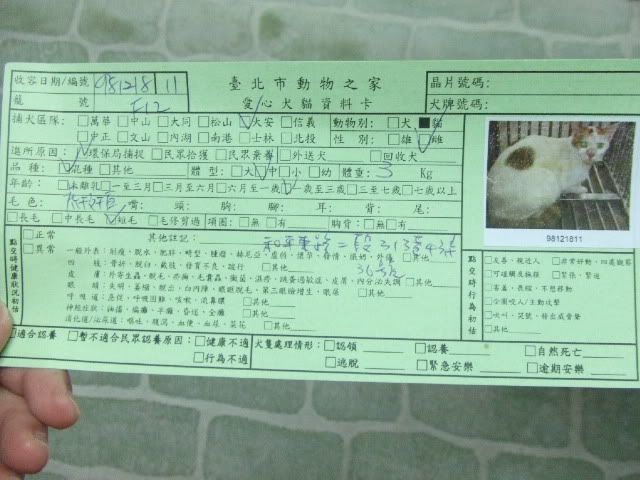 收容日期/編號 98121811 臺北市動物之家 晶片號碼:
籠 號 E12 愛心犬貓資料卡 犬牌號碼:
捕犬區隊: □萬華 □中山 □大同 □松山 ☑大安 □信義 動物別: □犬 ■貓
□中正 □文山 □內湖 □南港 □士林 □北投 性 別: □雄 ☑雌
進所原因: ☑環保局捕捉 □民眾拾獲 □民眾棄養 □外送犬 □回收犬
品 種: ☑混種 □其他 體 型: □大 ☑中 □小 □幼 體重: 3 Kg
年齡: □未離乳 □一至三月 □三月至六月 □六月至一歲 ☑一歲至三歲 □三至七歲 □七歲以上
毛 色: 嘴: 頭: 胸: 腳: 耳: 背: 尾:
□長毛 □中長毛 ☑短毛 □毛停剪過 項圈: □無 □有 胸背: □無 □有
98121811
點交時健康狀況初估
□正常 其他註記: 和平東路二段313巷
□異常 一般外表: 削瘦、脫水、肥胖、畸型、腫瘤、赫尼亞、虛弱、懷孕、發情、
四 肢: 骨折、脫臼、截肢、發育不良、跛行 □其他
皮 膚: 外寄生蟲、脫毛、疥癬、毛囊蟲、黴菌、濕疹、跳蚤過敏症、膿瘍、內分泌失調 □其他
眼 睛: 失明、萎縮、脫出、白內障、眼瞼脫毛、第三眼瞼增生、眼屎 □其他
呼吸道: 急促、呼吸困難、咳嗽、流鼻膿 □其他
神經症狀: 抽搐、癲癇、昏迷、全癱 □其他
消化道/泌尿道: 嘔吐、腹瀉、血便、血尿 □其他
點交時行為初估
□友善、親近人 □非常好動、四處撒尿
□可碰觸或撫摸 □緊張、緊迫
□害羞、畏縮、不想移動
□全面咬人/主動攻擊
□吹叫、哭號、發出威脅聲
□其他
□適合認養 □暫不適合民眾認養原因: □健康不適 犬隻處理情形: □認領 □認養 □自然死亡
□行為不適 □逃脫 □緊急安樂 □逾期安樂